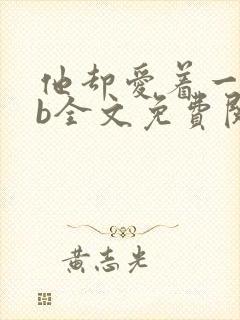 他却爱着一
b全文免費閱
黄志光